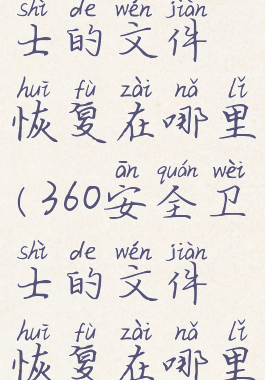 shì de wén jiàn
士的文件
huī fù zài nǎ lǐ
恢复在哪里
ān quán wèi
（360安全卫
shì de wén jiàn
士的文件
huī fù zài nǎ lǐ
恢复在哪里